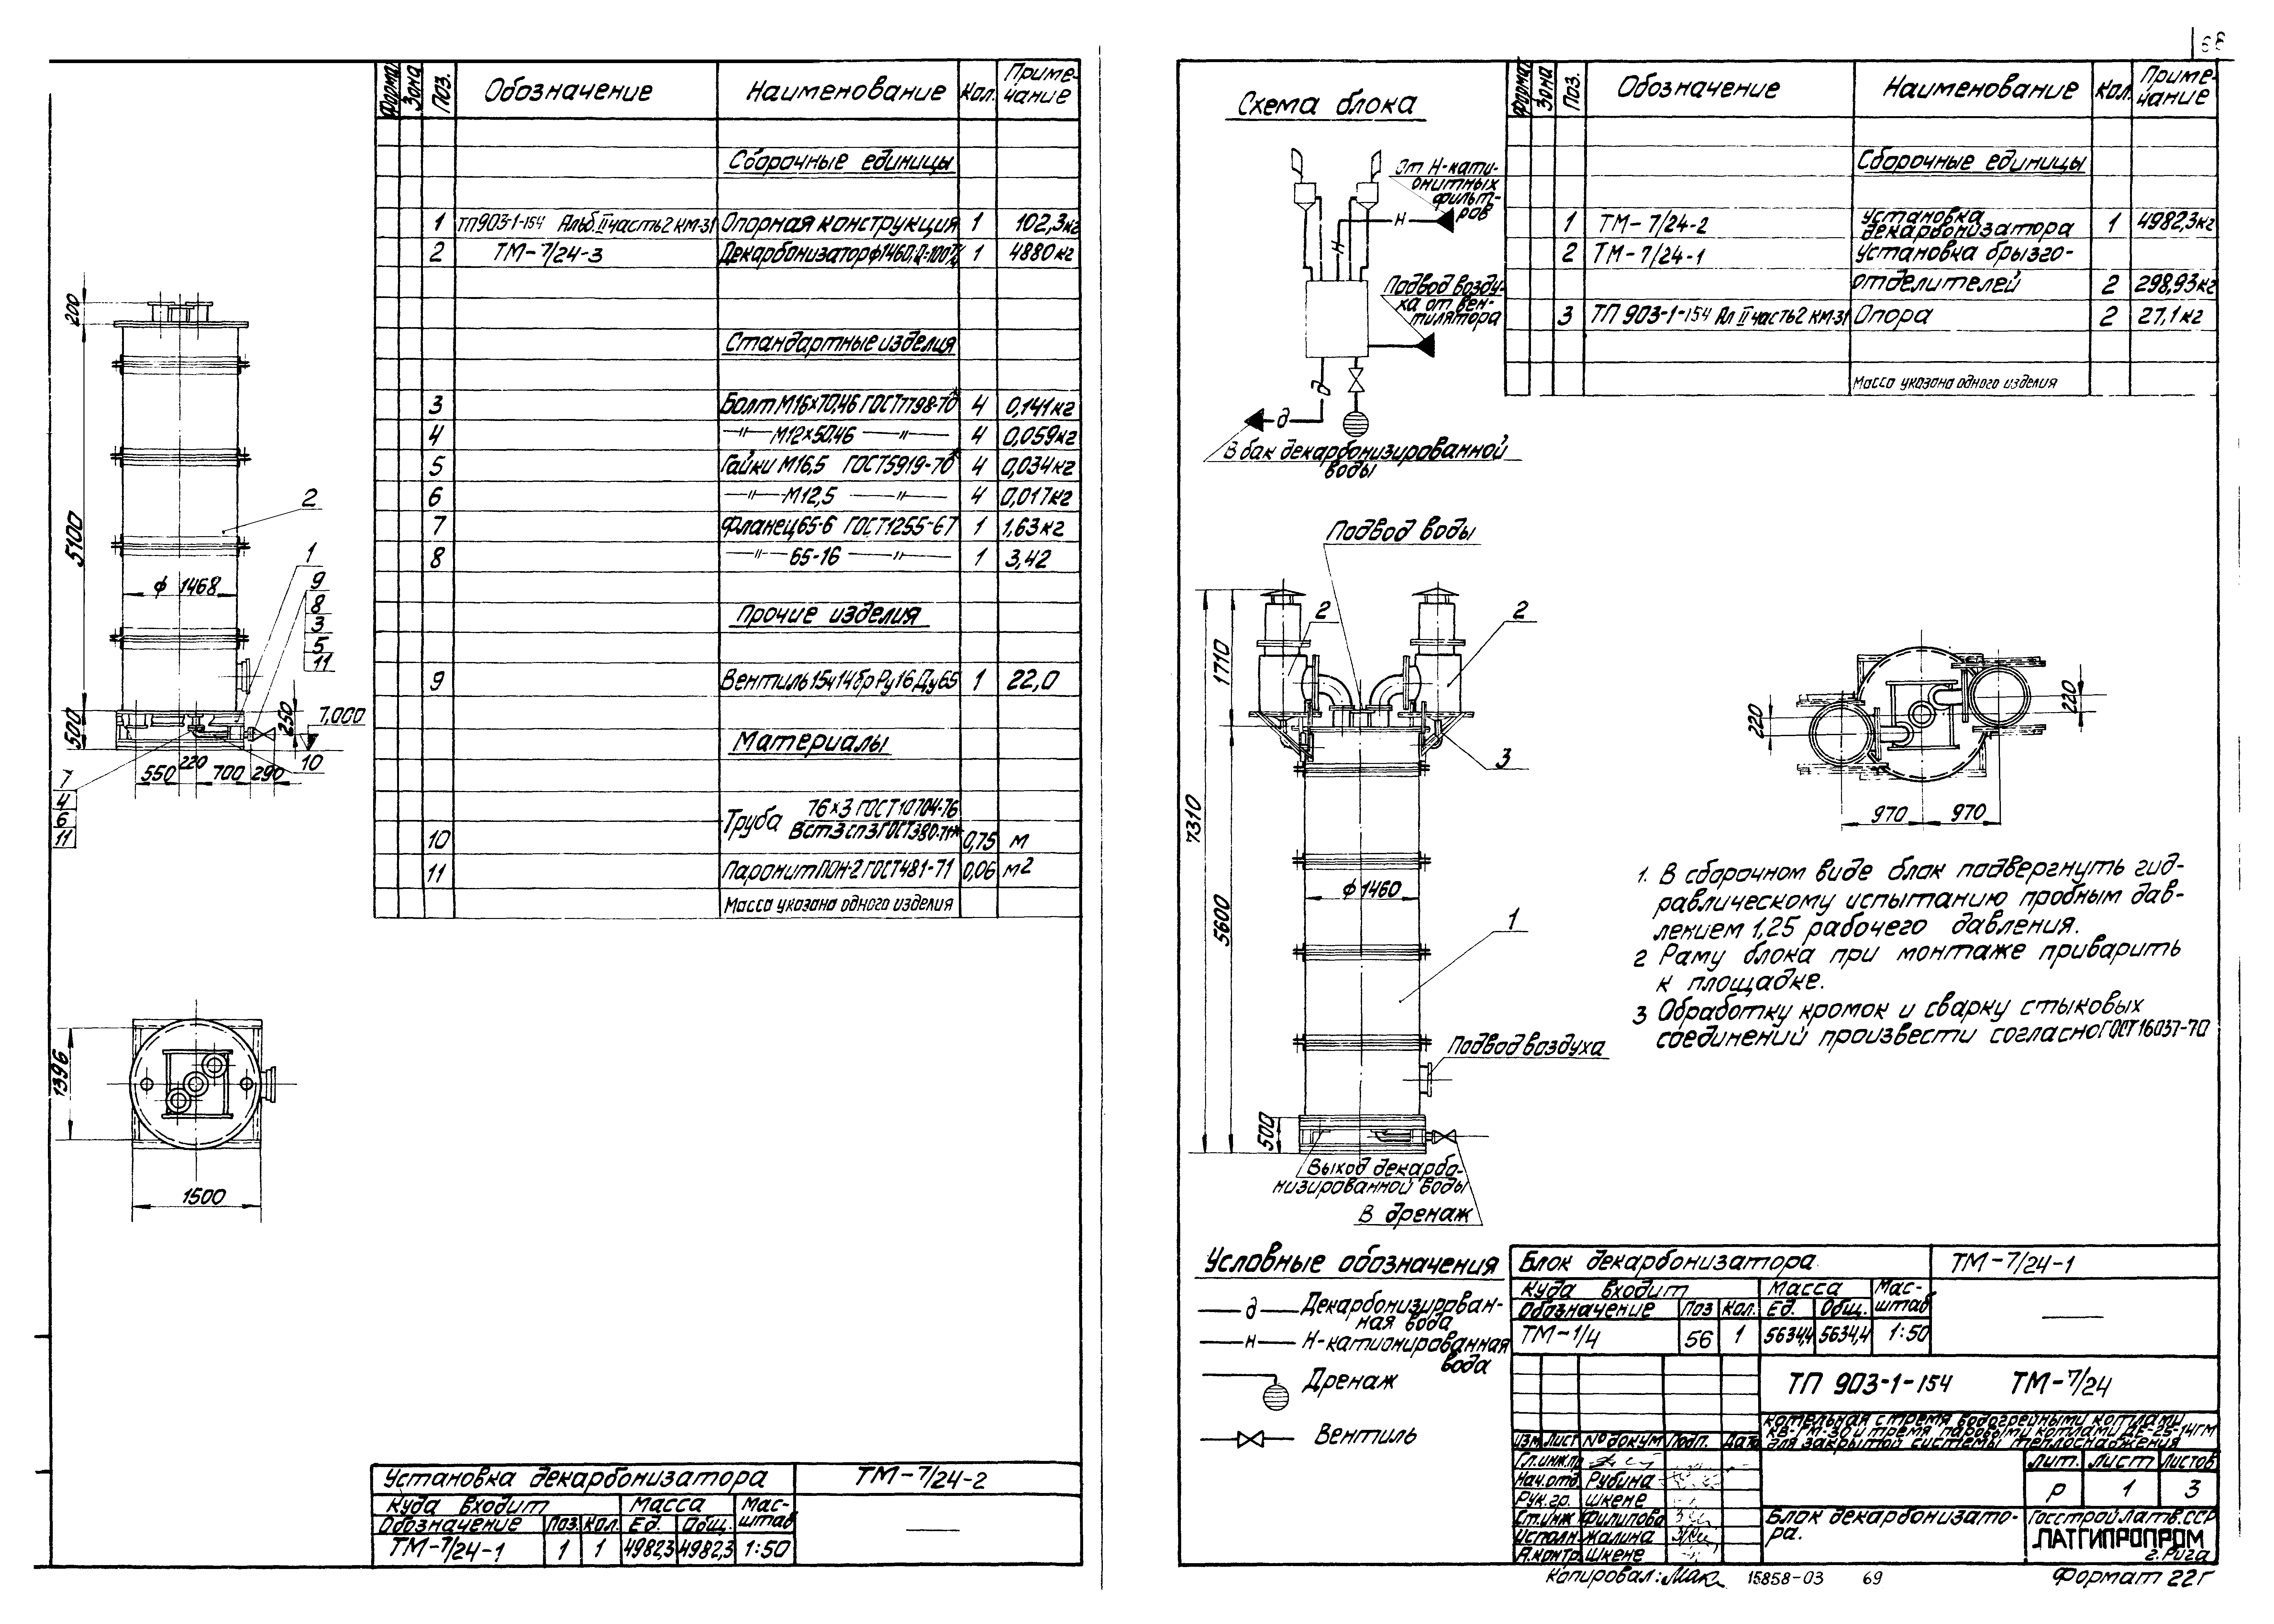 68
Формат Зона Поз. Обозначение Наименование Кол. Примечание
Сборочные единицы
1 ТП903-1-154 Альб.II часть2 КМ-31 Опорная конструкция 1 102,3кг
2 ТМ-7/24-3 Декарбонизатор ф1460,Q=100т/ч 1 4880кг
Стандартные изделия
3 Болт М16х70.46 ГОСТ7798-70* 4 0,141кг
4 —"— М12х50.46 —"— 4 0,059кг
5 Гайки М16.5 ГОСТ5919-70* 4 0,034кг
6 —"— М12,5 —"— 4 0,017кг
7 Фланец 65-6 ГОСТ1255-67 1 1,63кг
8 —"— 65-16 —"— 1 3,42
Прочие изделия
9 Вентиль 15ч14бр Ру16 Ду65 1 22,0
Материалы
Труба 76х3 ГОСТ10704-76
10 Вст3сп3ГОСТ380-71* 0,75 м
11 Паронит ПОН-2 ГОСТ481-71 0,06 м2
Масса указана одного изделия
200
5100
500
ф 1468
2
1
9
8
3
5
11
250
7,000
550 220 700 290
10
7
4
6
11
1396
1500
Установка декарбонизатора ТМ-7/24-2
Куда входит Масса Мас-
штаб
Обозначение Поз. Кол. Ед. Общ.
ТМ-7/24-1 1 1 4982,3 4982,3 1:50
Схема блока
От Н-кати-
онитных
фильт-
ров
Н
Н
Подвод возду-
ха от вен-
тилятора
д
д
В бак декарбонизированной
воды
Формат Зона Поз. Обозначение Наименование Кол. Приме-
чание
Сборочные единицы
1 ТМ-7/24-2 Установка
декарбонизатора 1 4982,3кг
2 ТМ-7/24-1 Установка брызго-
отделителей 2 298,93кг
3 ТП 903-1-154 Ал II часть2 КМ-31 Опора 2 27,1кг
Масса указана одного изделия
Подвод воды
2
2
1710
3
7310
5600
ф1460
1
Подвод воздуха
500
Выход декарбо-
низированной воды
В дренаж
220
220
970 970
1. В сборочном виде блок подвергнуть гид-
равлическому испытанию пробным дав-
лением 1,25 рабочего давления.
2 Раму блока при монтаже приварить
к площадке.
3 Обработку кромок и сварку стыковых
соединений произвести согласно ГОСТ 16037-70
Условные обозначения
д Декарбонизирован-
ная вода
Н Н-катионированная
вода
Дренаж
Вентиль
Блок декарбонизатора. ТМ-7/24-1
Куда входит Масса Мас-
штаб
Обозначение Поз Кол. Ед. Общ.
ТМ-1/4 56 1 5634,4 5634,4 1:50
ТП 903-1-154 ТМ-7/24
Котельная с тремя водогрейными котлами
КВ-ГМ-30 и тремя паровыми котлами ДЕ-25-14ГМ
для закрытой системы теплоснабжения
Изм. Лист № докум Подп. Дата
Гл.инж.пр
Нач.отд Рубина
Рук.гр. Шкене
Ст.инж Филипова
Исполн. Жалина
Н.контр. Шкене
Лит. Лист Листов
Р 1 3
Блок декарбонизато-
ра.
Госстрой Латв.ССР
ЛАТГИПРОПРОМ
г.Рига
Копировал: 15858-03 69 Формат 22г